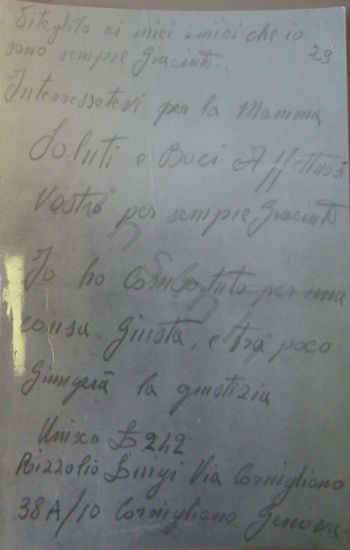 Diteglito ai miei amici che io
sono sempre Giacinto.
29
Interessatevi per la Mamma
Saluti e Baci Affettuosi
Vostro per sempre Giacinto
Io ho combattuto per una
causa Giusta, e tra poco
Giungerà la giustizia
Unisco £ 242
Luigi Via Cornigliano
38A/10 Cornigliano Genova